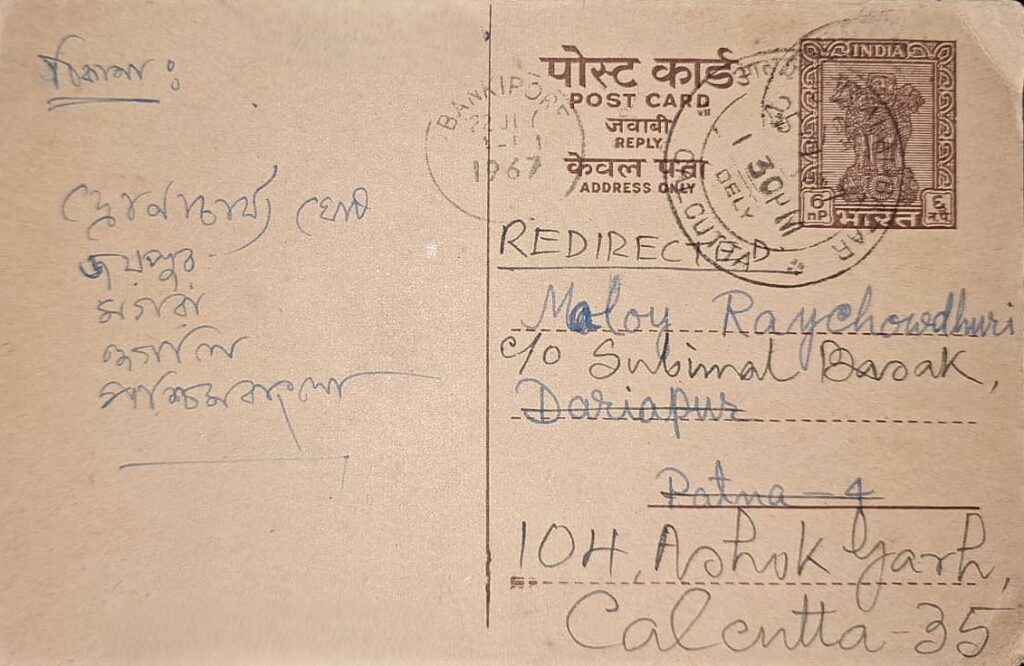 ঠিকানা :
দ্রোণাচার্য্য ঘোষ
জয়পুর
মগরা
হুগলি
পশ্চিমবাংলা
पोस्ट कार्ड
POST CARD
जवाबी
REPLY
केवल पता
ADDRESS ONLY
INDIA
6 nP भारत ६ न.पै.
BANKIPORE
1967
CALCUTTA
1 30PM
DELY
REDIRECTED
Maloy Raychowdhuri
c/o Subimal Basak,
Dariapur
Patna-4
104, Ashok Garh,
Calcutta-35